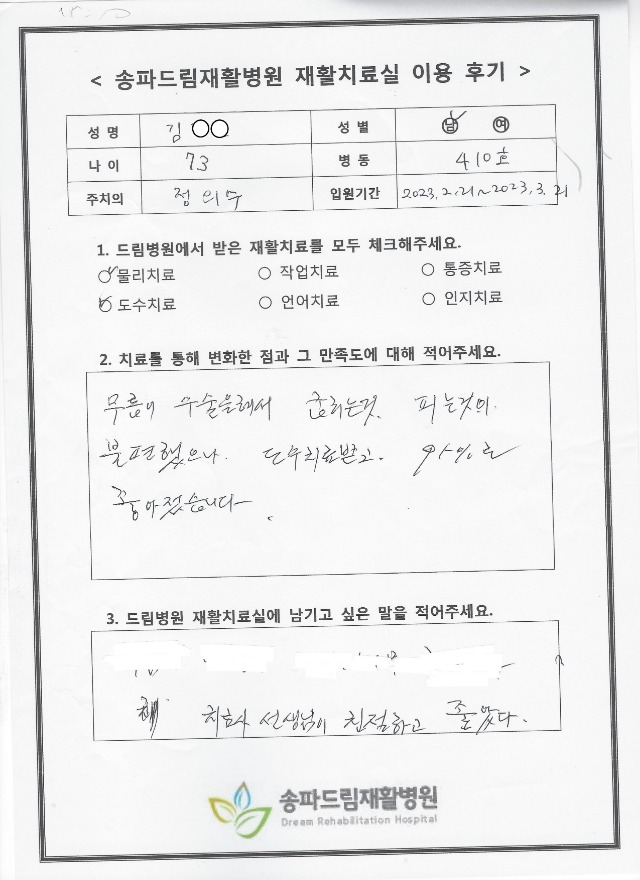 < 송파드림재활병원 재활치료실 이용 후기 >
성 명 김 ○○ 성 별 남 여
나 이 73 병 동 410호
주치의 정의수 입원기간 2023. 2. 21 ~ 2023. 3. 21
1. 드림병원에서 받은 재활치료를 모두 체크해주세요.
물리치료 작업치료 통증치료
도수치료 언어치료 인지치료
2. 치료를 통해 변화한 점과 그 만족도에 대해 적어주세요.
무릎이 수술을해서 굽히는것. 피는것의
불편했으나. 도수치료받고.
좋아졌습니다.
3. 드림병원 재활치료실에 남기고 싶은 말을 적어주세요.
치료사 선생님이 친절하고 좋았다.
송파드림재활병원
Dream Rehabilitation Hospital